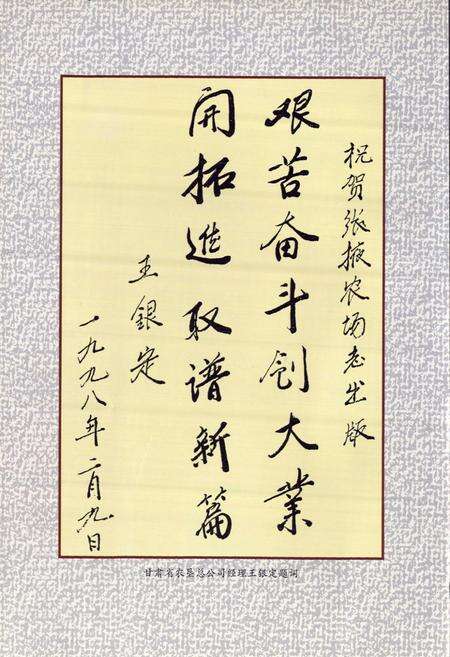 祝贺张掖农场志出版
艰苦奋斗创大业
開拓進取谱新篇
王銀定
一九九八年二月九日
甘肃省农垦总公司经理王银定题词